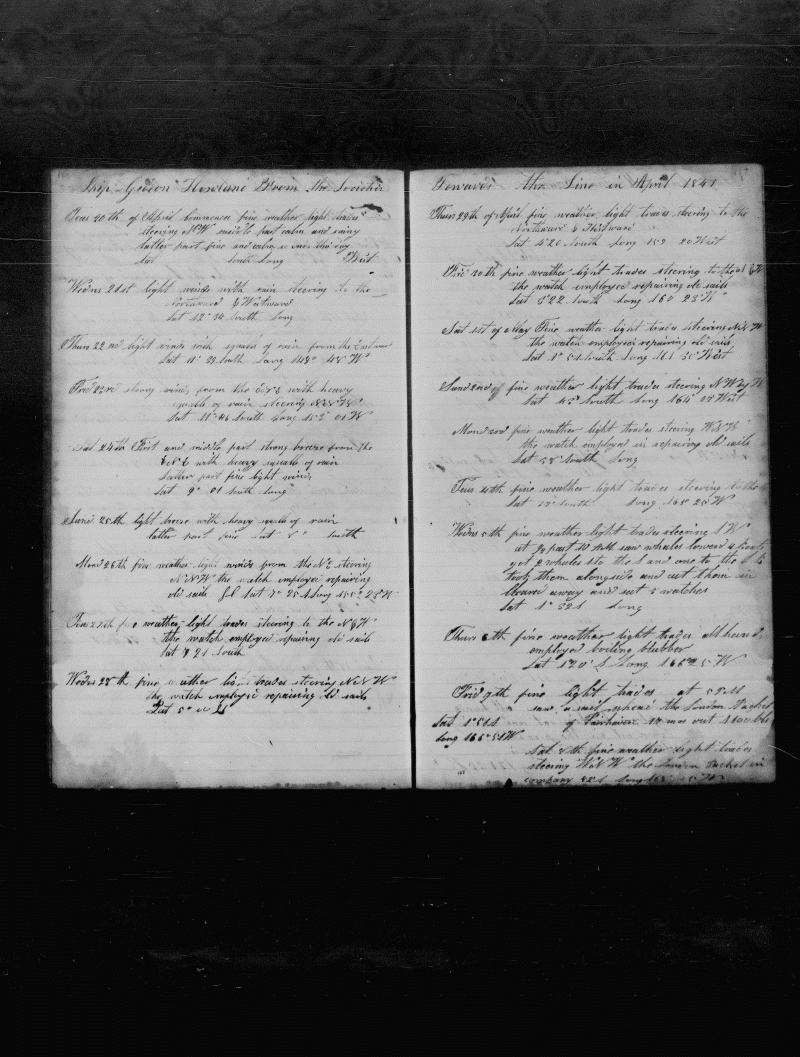 Ship Gideon Howland From the Societies
Tues 20th of April Commences fine weather light trades
steering NW middle part calm and rainy
latter part fine and calm so ends this day
Lat South Long West
Wedns 21st light winds with rain steering to the
Northward & Westward
Lat 12° 34 South Long
Thurs 22nd light winds with squalls of rain from the Eastward
Lat 11° 23 South Long 149° 48 W
Frid 23rd strong winds from the with heavy
squalls of rain steering
Lat 11° South Long 152° 01 W
Sat 24th First and middle part strong breeze from the
ENE with heavy squalls of rain
latter part fine light winds
Lat 9° 01 South Long
Sund 25th light breeze with heavy squalls of rain
latter part fine Lat 8° South
Mond 26th fine weather light winds from the NE steering
NNW the watch employed repairing
old sails Lat 7° 25 S Long 155° 28 W
Tues 27th fine weather light trades steering to the N & W
the watch employed repairing old sails
Lat 21 South
Wedns 28th fine weather light trades steering NNW
the watch employed repairing old sails
Lat 5°
Towards the Line in April 1841
Thurs 29th of April fine weather light trades steering to the
Northward & Westward
Lat 4°20 South Long 159 20 West
Fri 30th fine weather light trades steering to the N & W
the watch employed repairing old sails
Lat 3°22 South Long 160 23 W
Sat 1st of May Fine weather light trades steering
the watch employed repairing old sails
Lat 1° 51 South Long 161 35 West
Sund 2nd fine weather light trades steering N W by W
Lat South Long 164° 03 West
Mond 3rd fine weather light trades steering
the watch employed in repairing old sails
Lat 58 South Long
Tues 4th fine weather light trades steering to the
Lat South Long 165 25 W
Wedns 5th fine weather light trades steering
at past 10 AM saw whales lowered 4 boats
got 2 whales to the and one to the
took them alongside and cut them in
cleared away and set 3 watches
Lat 1° 32 S Long
Thurs 6th fine weather light trades all hands
employed boiling blubber
Lat 1 20 S Long 166 25 W
Frid 7th fine light trades at 5 PM
saw a sail spoke the London Packet
Lat 1° 51 S of Fairhaven mos out
Long 166° 51 W
Sat 8th fine weather light trades
steering the London Packet in
company Long